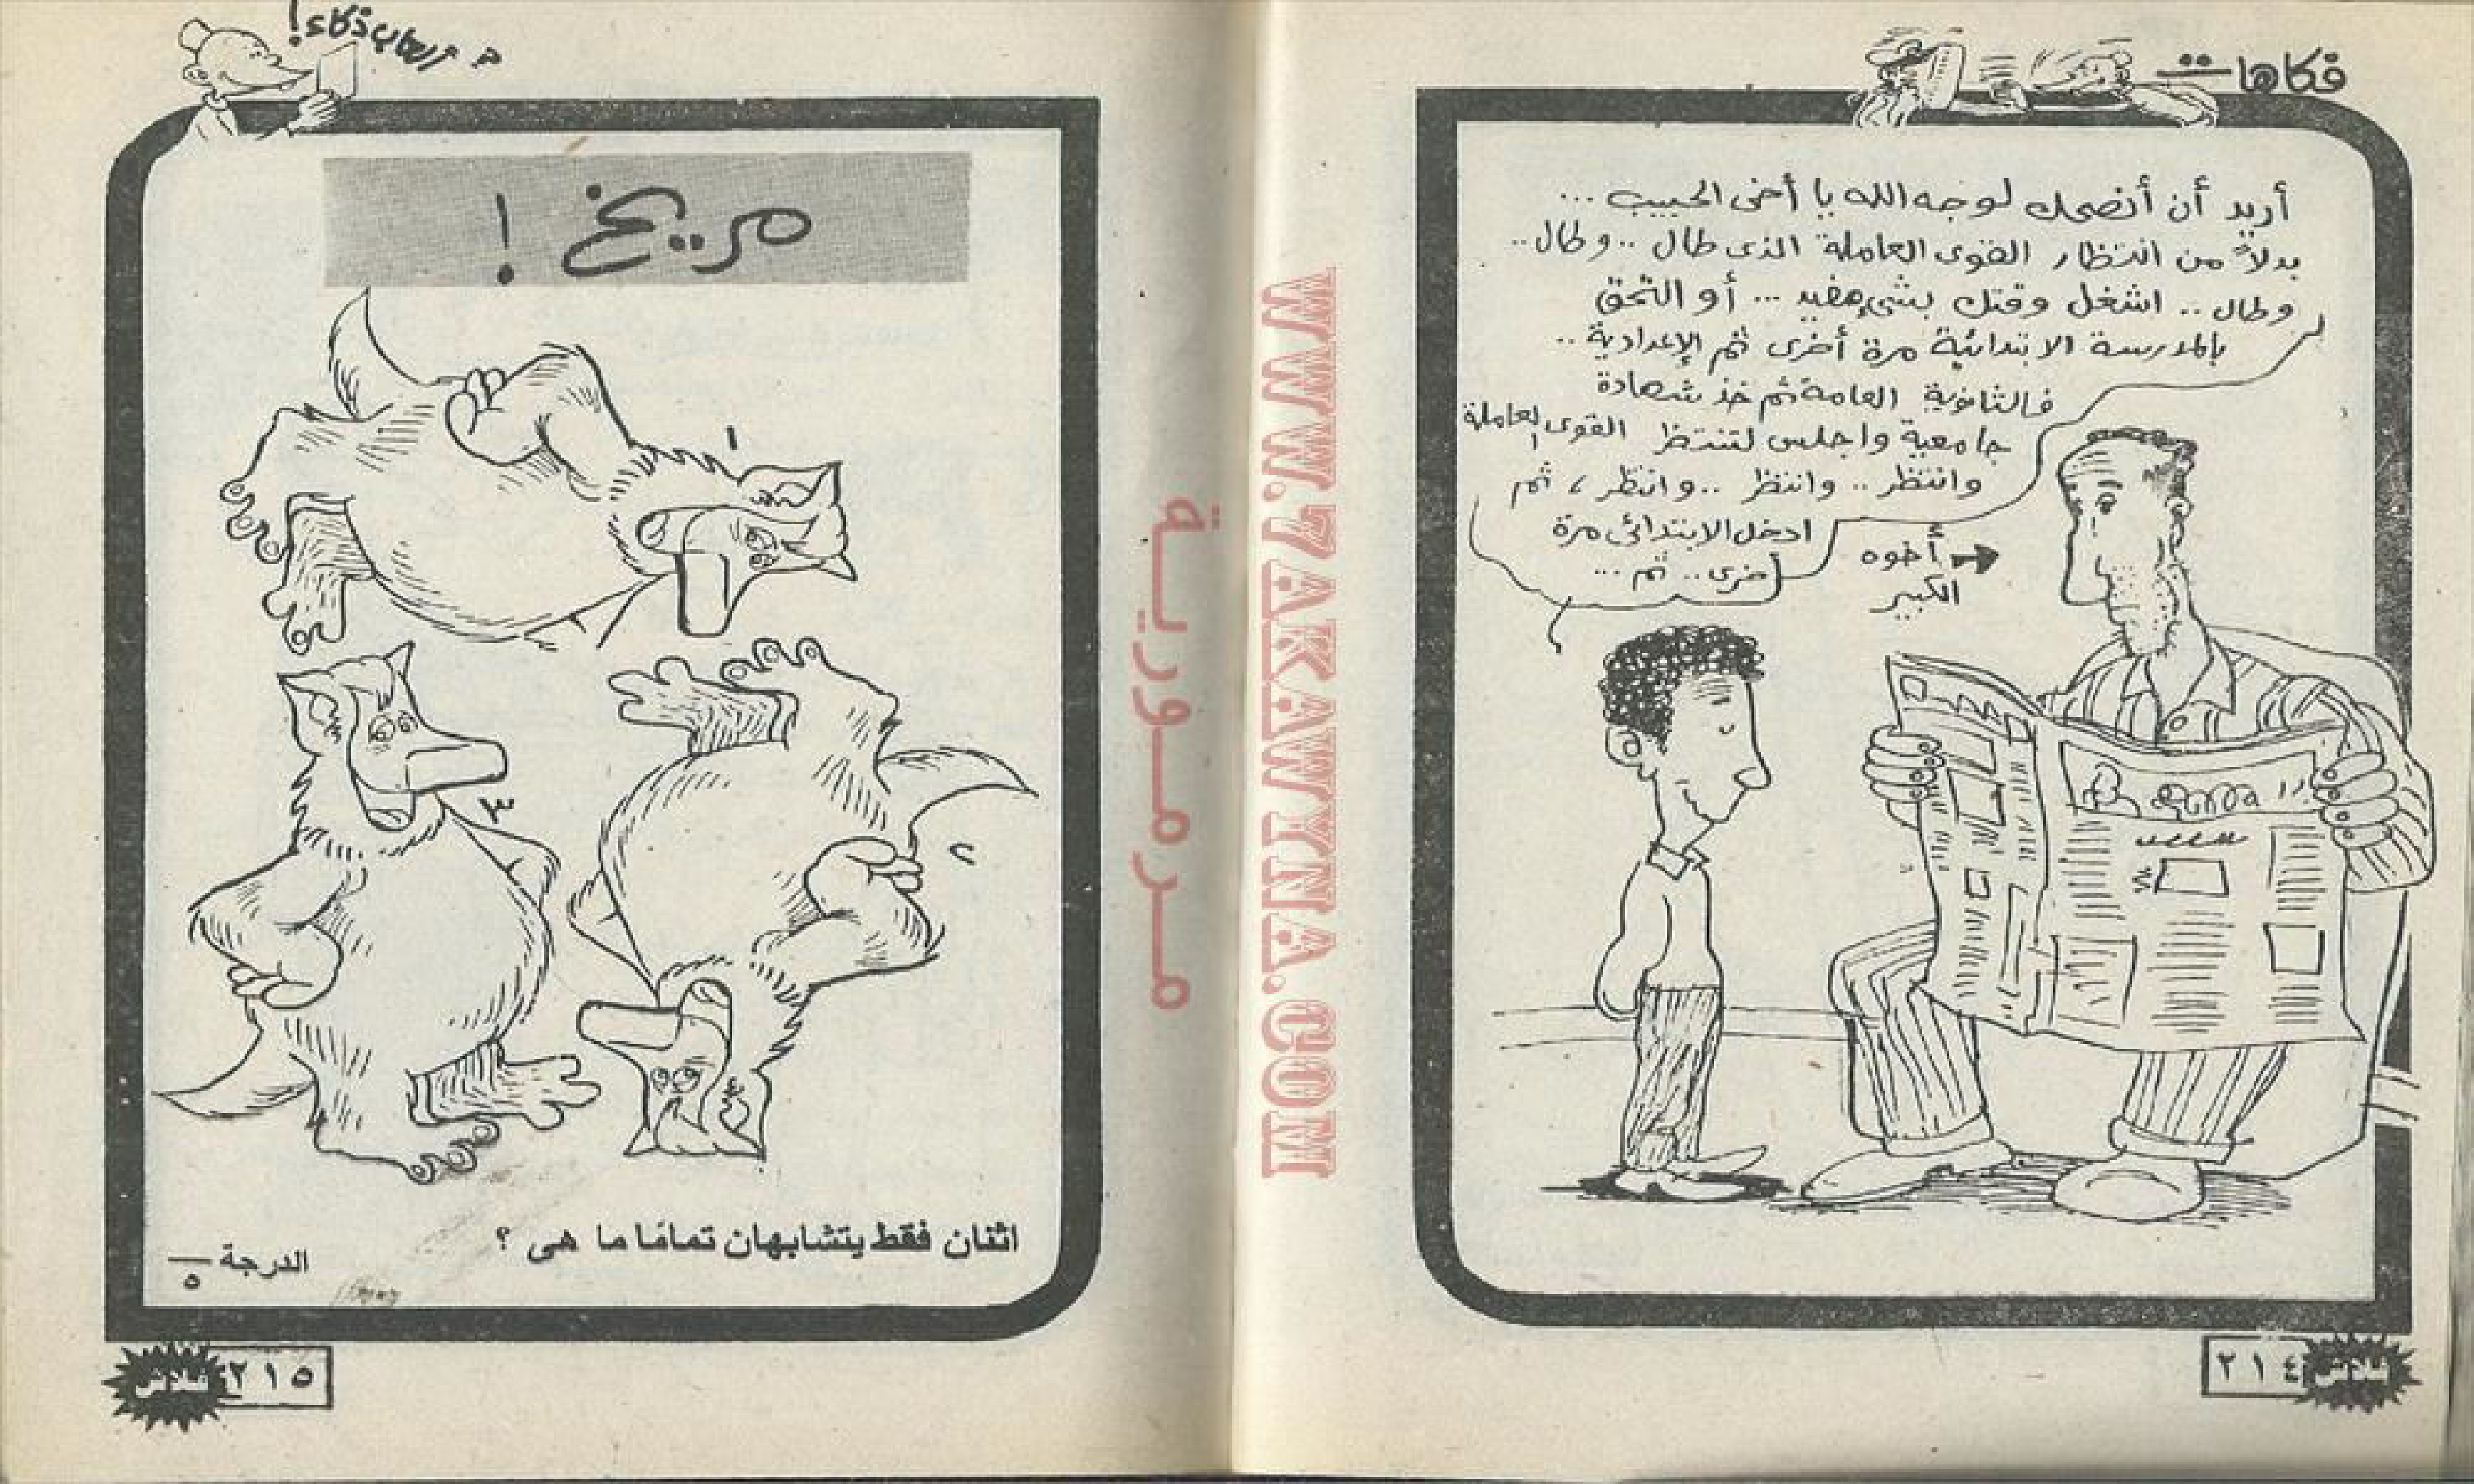 فكاهات
أريد أن أنصحك لوجه الله يا أخى الحبيب ...
بدلاً من انتظار القوى العاملة الذى طال .. وطال ..
وطال .. اشغل وقتك بشىء مفيد ... أو التحق
بالمدرسة الابتدائية مرة أخرى ثم الإعدادية ..
فالثانوية العامة ثم خذ شهادة
جامعية واجلس لتنتظر القوى العاملة
وانتظر .. وانتظر .. وانتظر ، ثم
ادخل الابتدائى مرة
أخرى .. ثم ...
أخوه
الكبير
٢١٤
فلاش
WWW.7AKAWINA.COM
مرمورية
ألعاب ذكاء !
مريخ !
١
٢
٣
اثنان فقط يتشابهان تمامًا ما هى ؟
الدرجة —
٥
٢١٥
فلاش